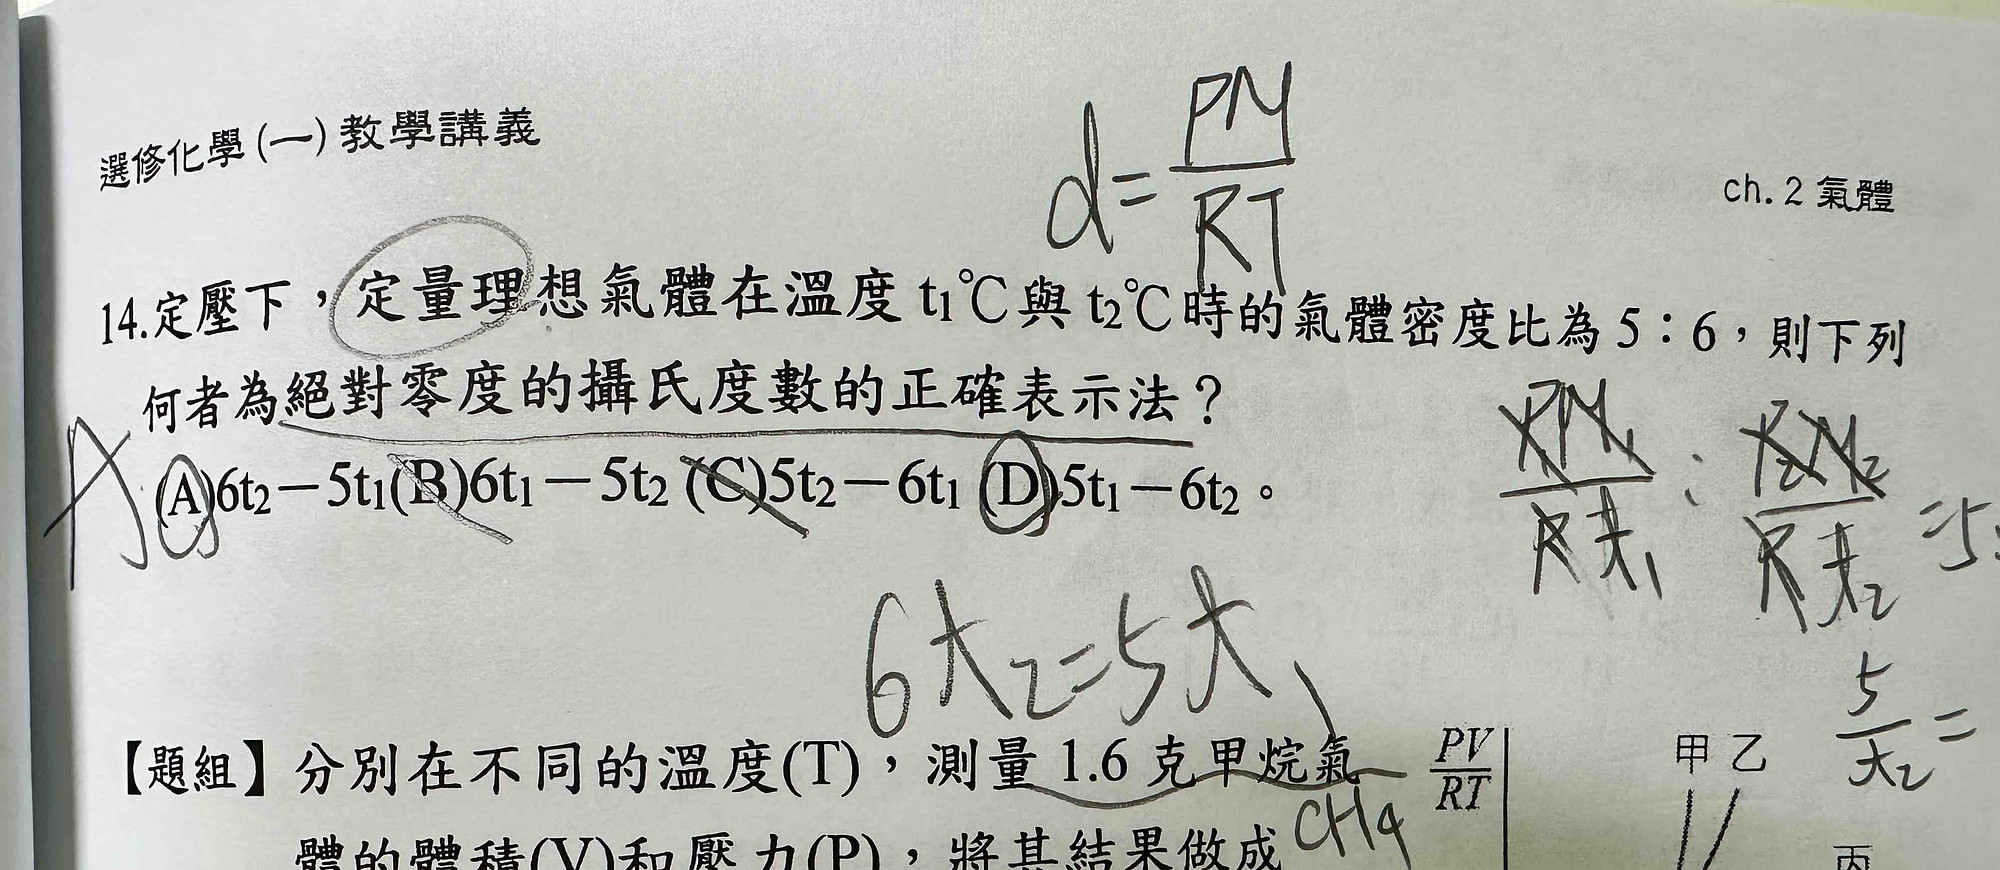 選修化學(一)教學講義
d=PM/RT
ch.2 氣體
14.定壓下，定量理想氣體在溫度 t₁℃與 t₂℃時的氣體密度比為 5：6，則下列
何者為絕對零度的攝氏度數的正確表示法？
A (A)6t₂－5t₁(B)6t₁－5t₂ (C)5t₂－6t₁ (D)5t₁－6t₂。
6t₂=5t₁
5/t₂=
【題組】分別在不同的溫度(T)，測量 1.6 克甲烷氣
CH₄
體的體積(V)和壓力(P)，將其結果做成
PV/RT
甲 乙
丙